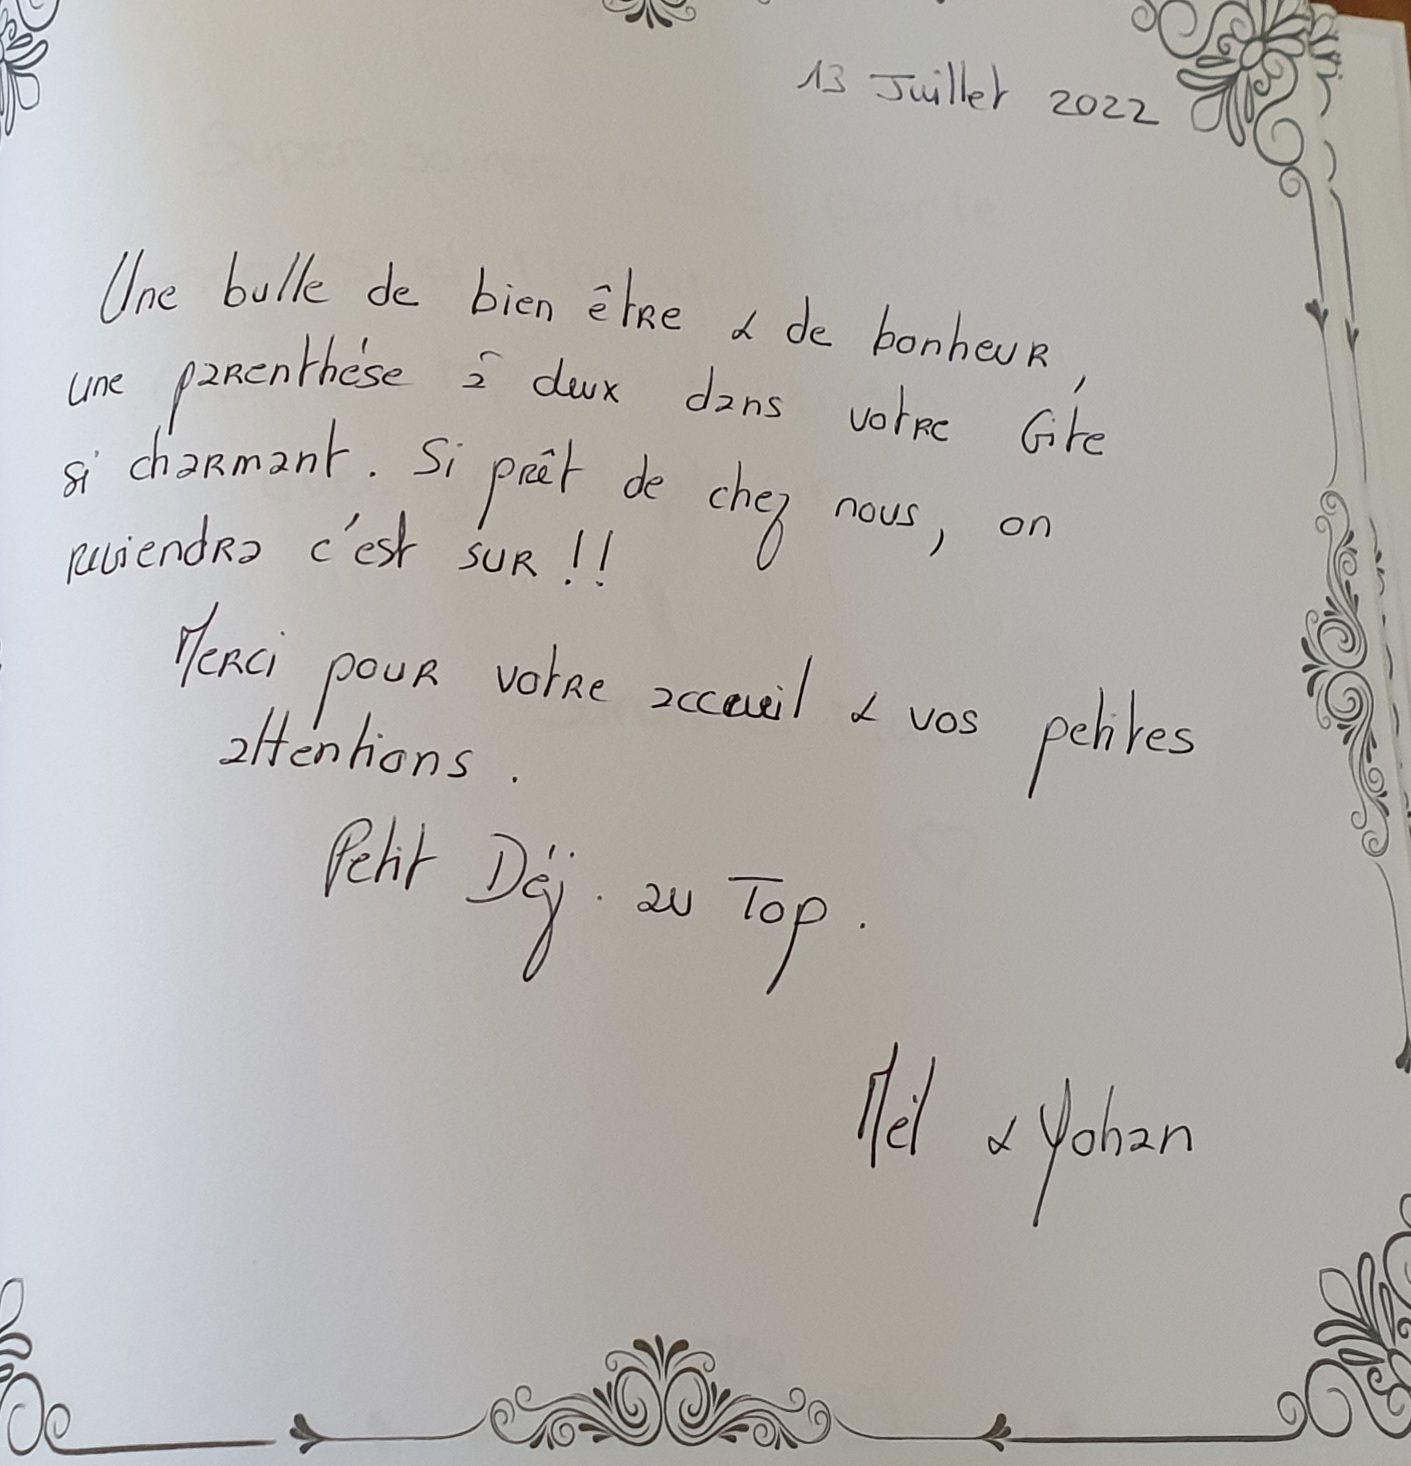 13 Juillet 2022
Une bulle de bien être & de bonheur,
une parenthése à deux dans votre Gite
si charmant. Si prêt de chez nous, on
reviendra c'est sur !!
Merci pour votre accueil & vos petites
attentions.
Petit Déj. au Top.
Mel & Yohan